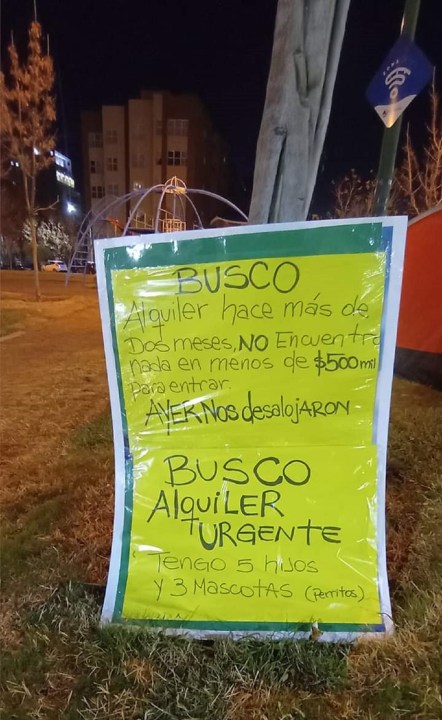 BUSCO
Alquiler hace más de
Dos meses, NO Encuentro
nada en menos de $500 mil
para entrar.
AYER, Nos desalojARON
BUSCO
AlquiLER
URGENTE
Tengo 5 hijos
Y 3 MascotAs (Perritos)